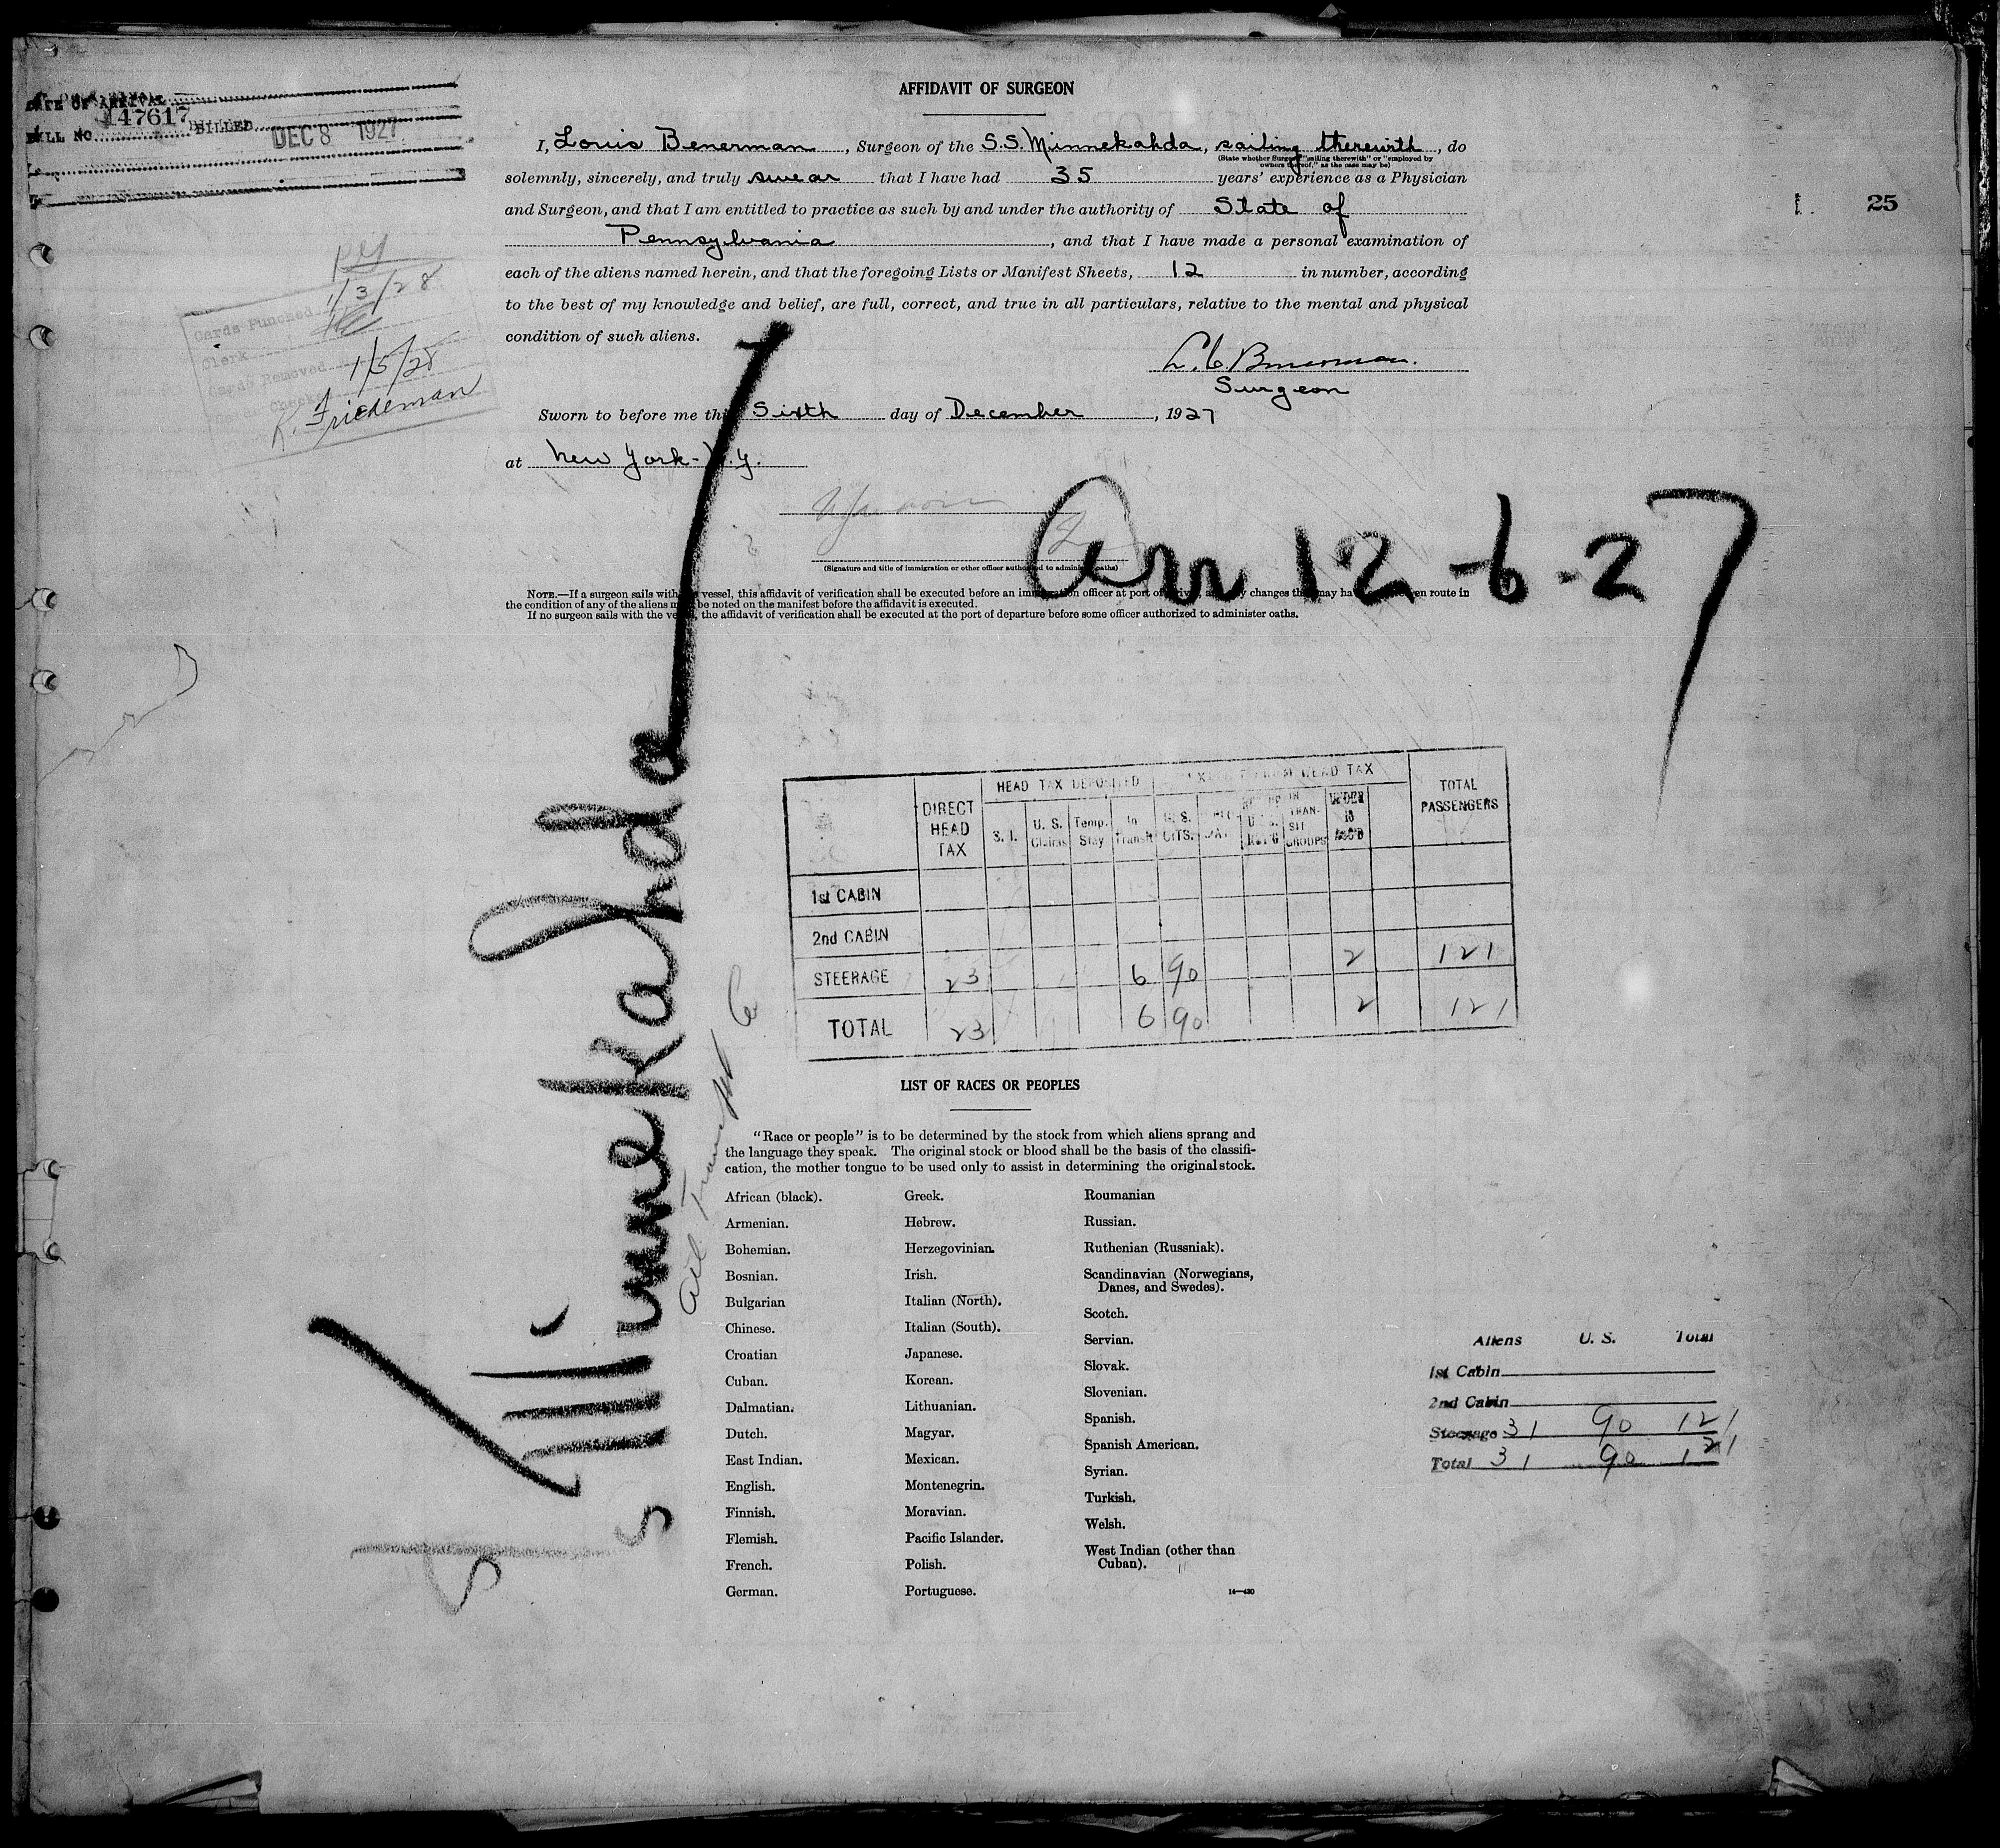 DATE OF ARRIVAL
BILL NO. 147617 BILLED DEC 8 1927
AFFIDAVIT OF SURGEON
I, Louis Benerman, Surgeon of the S.S. Minnekahda, sailing therewith, do
(State whether Surgeon "sailing therewith" or "employed by
owners thereof," as the case may be)
solemnly, sincerely, and truly swear that I have had 35 years' experience as a Physician
and Surgeon, and that I am entitled to practice as such by and under the authority of State of
Pennsylvania, and that I have made a personal examination of
each of the aliens named herein, and that the foregoing Lists or Manifest Sheets, 12 in number, according
to the best of my knowledge and belief, are full, correct, and true in all particulars, relative to the mental and physical
condition of such aliens.
25
1/3/28
Cards Punched
Clerk
Cards Removed 1/5/28
K. Friedeman
L. C. Benerman.
Surgeon
Sworn to before me this Sixth day of December, 1927
at New York - N.Y.
(Signature and title of immigration or other officer authorized to administer oaths)
Arr 12-6-27
NOTE.—If a surgeon sails with the vessel, this affidavit of verification shall be executed before an immigration officer at port of arrival, any changes that may have en route in
the condition of any of the aliens must be noted on the manifest before the affidavit is executed.
If no surgeon sails with the vessel, the affidavit of verification shall be executed at the port of departure before some officer authorized to administer oaths.
SS Minnekahda
All Transit 6
DIRECT HEAD TAX
HEAD TAX DEPOSITED
EXEMPT FROM HEAD TAX
TOTAL PASSENGERS
S. I.
U. S. Citzins
Temp. Stay
In Transit
U. S. CITS.
TRANSIT GROUPS
UNDER 16 ACC'D
1st CABIN
2nd CABIN
STEERAGE 23 6 90 2 121
TOTAL 23 6 90 2 121
LIST OF RACES OR PEOPLES
"Race or people" is to be determined by the stock from which aliens sprang and
the language they speak. The original stock or blood shall be the basis of the classifi-
cation, the mother tongue to be used only to assist in determining the original stock.
African (black).
Armenian.
Bohemian.
Bosnian.
Bulgarian
Chinese.
Croatian
Cuban.
Dalmatian.
Dutch.
East Indian.
English.
Finnish.
Flemish.
French.
German.
Greek.
Hebrew.
Herzegovinian.
Irish.
Italian (North).
Italian (South).
Japanese.
Korean.
Lithuanian.
Magyar.
Mexican.
Montenegrin.
Moravian.
Pacific Islander.
Polish.
Portuguese.
Roumanian
Russian.
Ruthenian (Russniak).
Scandinavian (Norwegians,
Danes, and Swedes).
Scotch.
Servian.
Slovak.
Slovenian.
Spanish.
Spanish American.
Syrian.
Turkish.
Welsh.
West Indian (other than
Cuban).
14—430
Aliens U. S. Total
1st Cabin
2nd Cabin
Steerage 31 90 121
Total 31 90 121